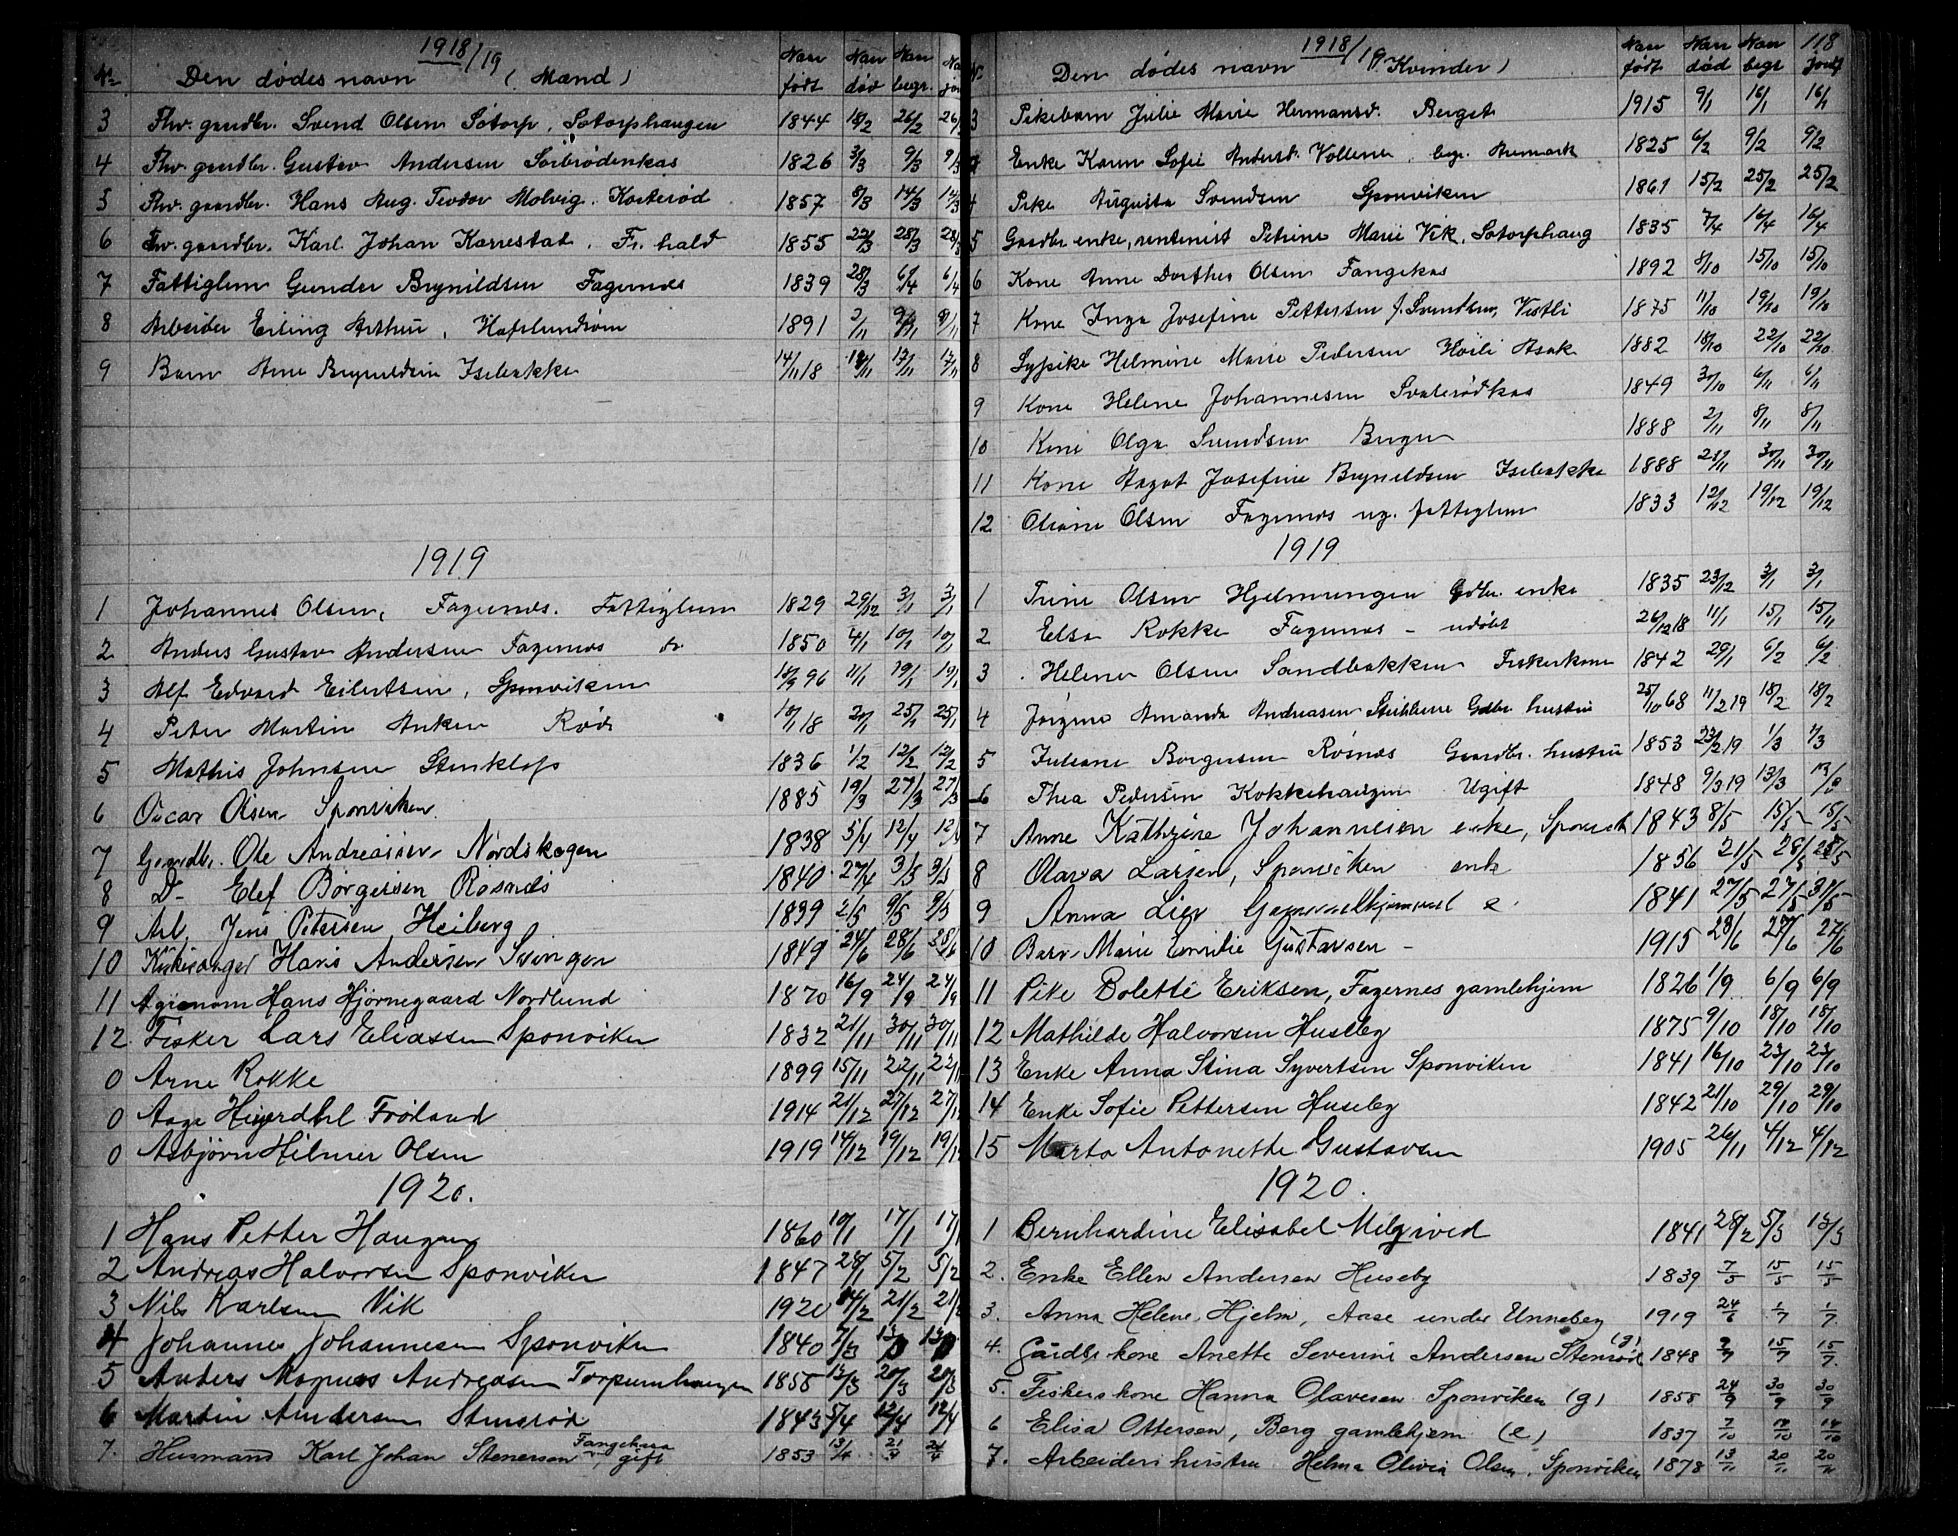 1918/19
No Den dødes navn (Mænd) Naar født Naar død Naar begr.
3 Fhv. gaardbr. Svend Olsen Sotorp, Sotorphaugen 1844 18/2 26/2 26/
4 Fhv. gaardbr. Gustav Andersen Sörbrödenkas 1826 3/3 9/3 9/3
5 Fhv. gaardbr. Hans Aug. Teodor Molvig. Korterød 1857 8/3 14/3 14/3
6 Fhv. gaardbr. Karl Johan Karrestad. Fr. hald 1855 22/3 28/3 28/3
7 Fattiglem Gunder Brynildsen Fagernæs 1839 28/3 6/4 6/4
8 Arbeider Erling Arthur, Hafslundsøen 1891 2/11 9/11 9/11
9 Barn Arne Brynildsen Isebakke 14/11 18 /11 17/11 17/11
1919
1 Johannes Olsen, Fagernæs. Fattiglem 1829 29/12 3/1 3/1
2 Anders Gustav Andersen Fagernæs do 1850 4/1 10/1 10/1
3 Alf Edvard Eilertsen, Sponviken 96 11/1 19/1 19/1
4 Peter Martin Anker Rød 10/1 18 20/1 25/1 25/1
5 Mathis Johnsen Stenkløs 1836 1/2 12/2 12/2
6 Oscar Olsen Sponviken. 1885 19/3 27/3 27/3
7 Gaardbr. Ole Andreassen Nordskogen 1838 5/4 12/4 12/
8 Do Elef Børgersen Røsnæs 1840 27/4 3/5 3/5
9 Arb. Jens Petersen Heiberg 1839 2/5 9/5 9/5
10 Kirkesanger Hans Andersen Svingen 1849 24/6 28/6 28/6
11 Agronom Hans Hjørnegaard Nordlund 1870 16/9 24/9 24/9
12. Fisker Lars Eliassen Sponviken 1832 21/11 30/11 30/11
0 Arne Rokke 1899 15/11 22/11 22/11
0 Aage Frøland 1914 21/12 27/12 27/1
0 Asbjørn Hilmer Olsen 1919 14/12 19/12 19/12
1920.
1 Hans Petter Haugen 1860 10/1 17/1 17/1
2 Andreas Halvorsen Sponviken 1847 28/1 5/2 5/2
3 Nils Karlsen Vik 1920 14/2 21/2 21/2
4 Johannes Johannesen Sponviken 1840 7/3 13/3 13/3
5 Anders Magnus Andreasen Torpumhaugen 1855 13/3 20/3 20/3
6 Martin Andersen Stensrød 1843 5/4 12/4 12/4
7. Husmand Karl Johan Stenersen Fangekasa gift 1853 13/4 21/4 21/4
1918/19 118
No Den dødes navn (Kvinder) Naar født Naar død Naar begr. Jordf
3 Pikebarn Julie Marie Hermansd. Berget 1915 9/1 16/1 16/1
4 Enke Karen Sofie Andersd. Vollene. begr. Aremark 1825 6/2 9/2 9/2
4 Pike Augusta Svendsen Sponviken 1861 15/2 25/2 25/2
5 Gaardbr enke, rentenist Petrine Marie Vik, Sotorphaug 1835 7/4 16/4 16/4
6 Kone Anne Dorthea Olsen Fangekas 1892 8/10 15/10 15/10
7 Kone Inga Josefine Pettersen f. Svendsen, Vestli 1875 11/10 19/10 19/10
8 Sypike Helmine Marie Pedersen Høili Asak 1882 18/10 22/10 22/10
9 Kone Helene Johannesen Svalerødkas 1849 30/10 6/11 6/11
10 Kone Olga Svendsen Berger 1888 2/11 8/11 8/11
11 Kone Aagot Josefine Brynildsen Isebakke 1888 21/11 30/11 30/11
12 Oliane Olsen Fagernæs ug. fattiglem 1833 12/12 19/12 19/12
1919
1 Trine Olsen Hjelmungen Gdbr. enke 1835 23/12 3/1 3/1
2 Elsa Rokke Fagernæs - udøbt 26/12 18 11/1 15/1 15/1
3 Helene Olsen Sandbakken Fiskerkone 1842 29/1 6/2 6/2
4 Jørgine Amanda Andreasen Stubberu Gdbr. hustru 25/10 68 11/2 19 18/2 18/2
5 Juliane Borgersen Røsnæs Gaardbr. hustru 1853 23/2 19 1/3 1/3
6 Thea Pedersen Kokkehaugen Ugift 1848 9/3 19 13/3 13/3
7 Anne Kathrine Johannesen enke, Sponvik 1843 8/5 15/5 15/5
8 Olava Larsen, Sponviken enke 1856 21/5 28/5 28/5
9 Anna Lier Gamlehjemmet e. 1841 27/5 27/5 31/5
10 Barn Marie Emilie Gustavsen - 1915 23/6 27/6 27/6
11 Pike Bolette Eriksen, Fagernes gamlehjem 1826 1/9 6/9 6/9
12 Mathilde Halvorsen Huseby 1875 9/10 15/10 15/10
13 Enke Anna Stina Syvertsen Sponviken 1841 16/10 23/10 23/10
14 Enke Sofie Pettersen Huseby 1842 21/10 29/10 29/10
15 Marta Antonette Gustavsen 1905 26/11 4/12 4/12
1920.
1 Bernhardine Elisabet Melgved 1841 28/2 5/3 15/3
2. Enke Ellen Andersen Huseby 1839 7/5 15/5 15/5
3. Anna Helene Hjelm, Aase under Unneberg 1919 24/6 1/7 1/7
4. Gaardbr kone Anette Severine Andersen Stensrød (g) 1848 15/7 15/7
5. Fiskerskone Hanna Olavesen Sponviken (g) 1855 24/9 30/9 30/9
6 Elisa Ottersen, Berg gamlehjem (e) 1837 7/10 14/10 14/10
7. Arbeiders hustru Helma Olivia Olsen, Sponviken 1878 13/11 20/11 20/11